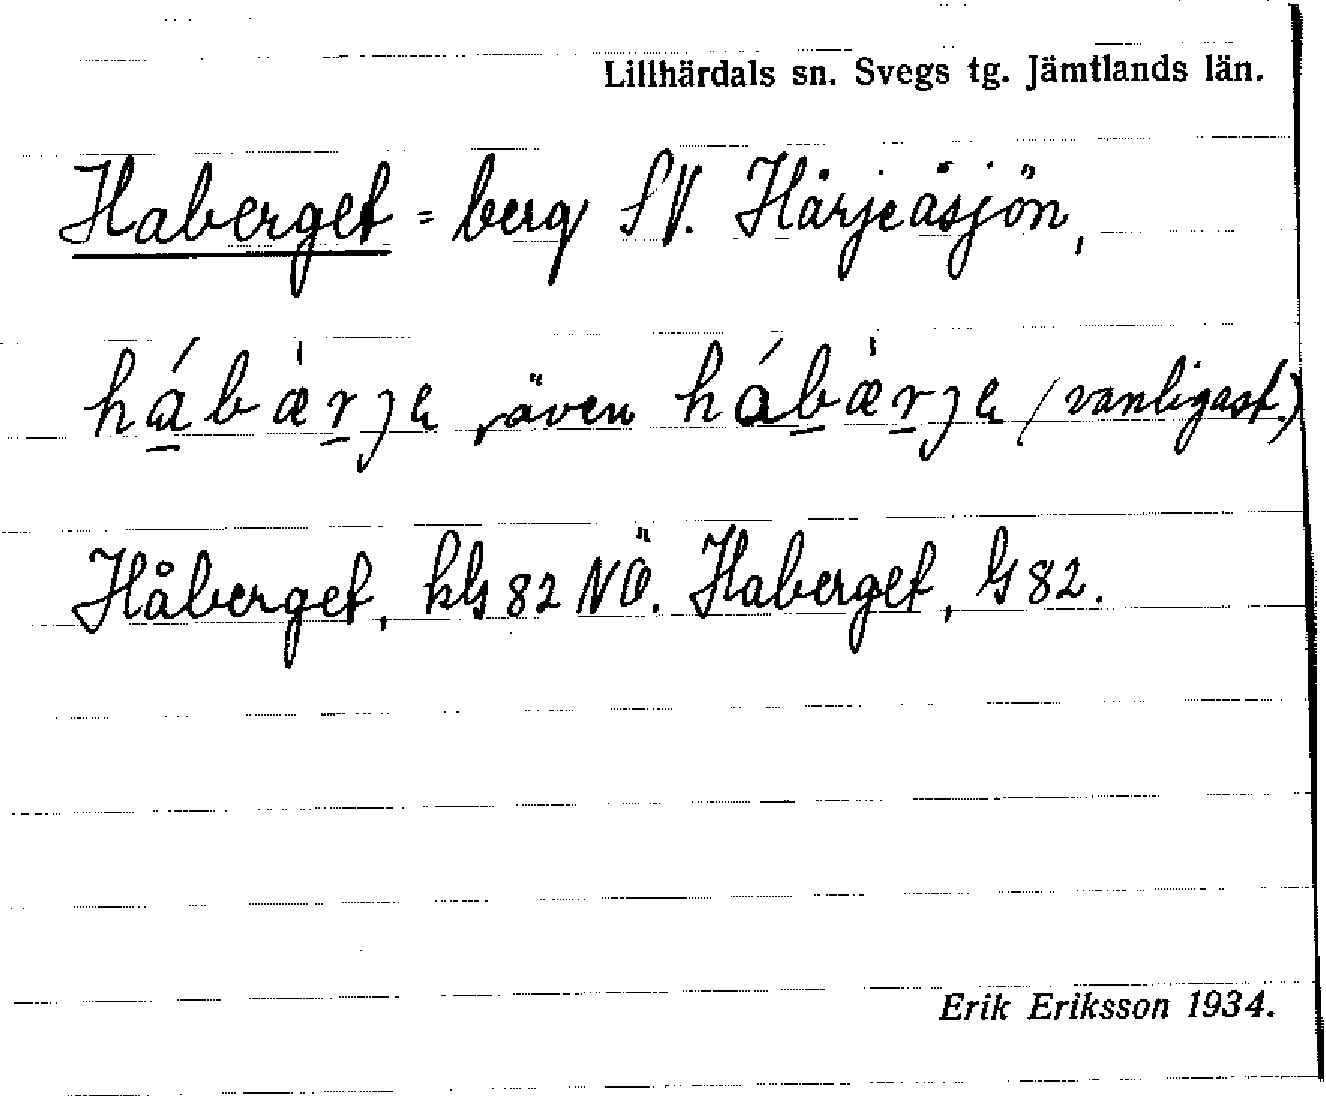 Lillhärdals sn. Svegs tg. Jämtlands län.
Haberget = berg SV. Hårjeåsjön,
há̱bæ̀ṟje, även hábæ̀ṟje (vanligast.)
Håberget, kbl 82 NÖ. Haberget, G 82.
Erik Eriksson 1934.